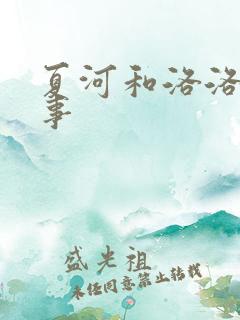 夏河和洛洛
事
盛光祖
未经同意禁止转载